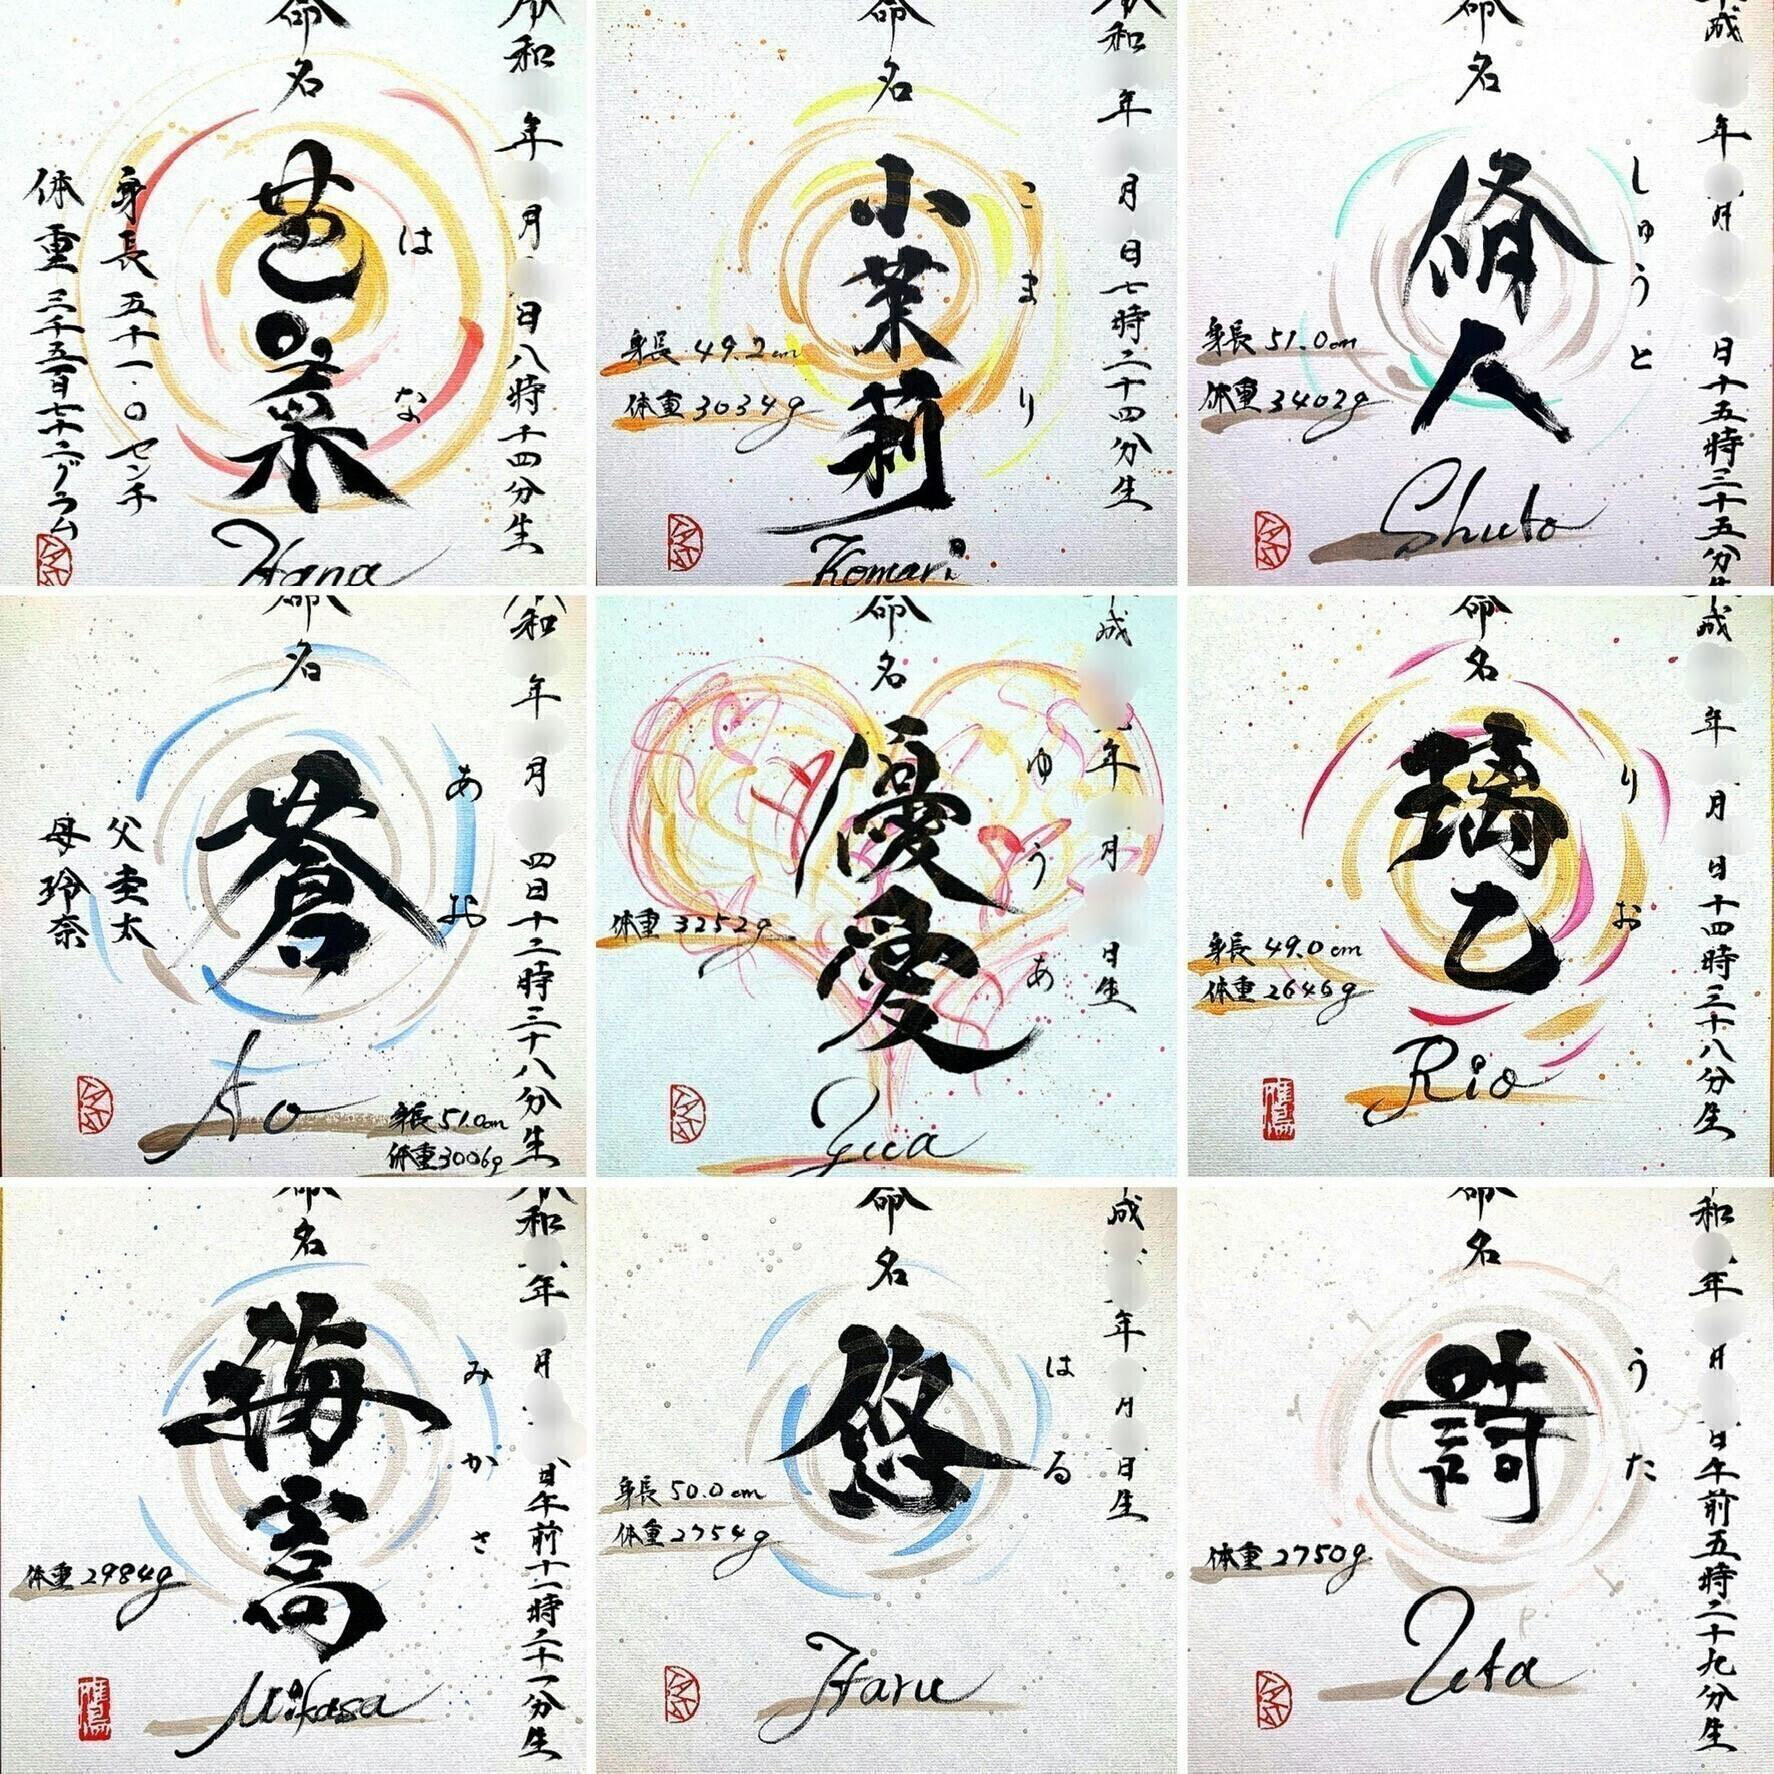 命名
令和 年 月 日八時十四分生
芭菜
はな
身長五十一・〇センチ
体重三千五百七十二グラム
Hana
命名
令和 年 月 日七時二十四分生
小茉莉
こまり
身長 49.2cm
体重 3034g
Komari
命名
平成 年 月 日十五時三十五分生
脩人
しゅうと
身長 51.0cm
体重 3402g
Shuto
命名
令和 年 月 四日十二時三十八分生
蒼
あお
父 圭太
母 玲奈
Ao
身長 51.0cm
体重 3006g
命名
平成 年 月 日生
優愛
ゆうあ
体重 3252g
Yua
命名
平成 年 月 日十四時三十八分生
璃乙
りお
身長 49.0cm
体重 2646g
Rio
命名
令和 年 月 日午前十一時二十一分生
海嵩
みかさ
体重 2984g
Mikasa
命名
平成 年 月 日生
悠
はる
身長 50.0cm
体重 2754g
Haru
命名
令和 年 月 日午前五時二十九分生
詩
うた
体重 2750g
Uta